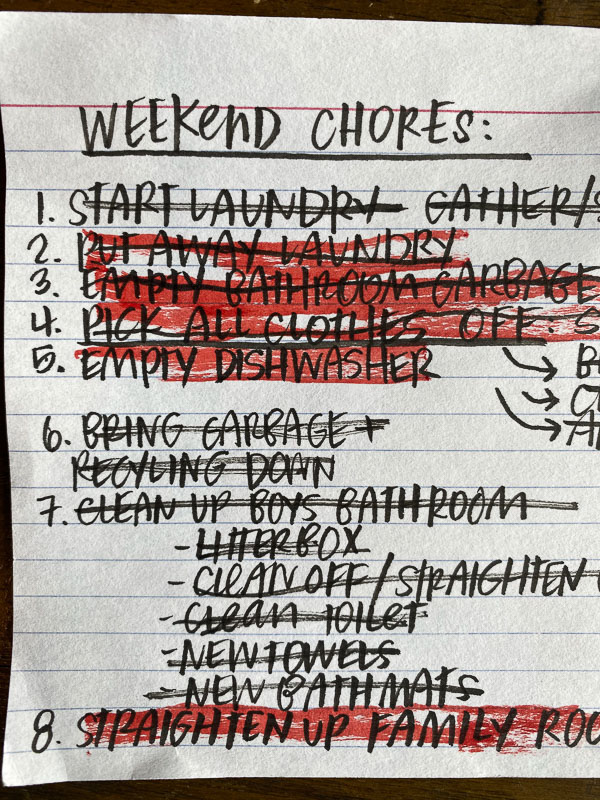 WEEKEND CHORES:
1. START LAUNDRY GATHER/S
2. PUT AWAY LAUNDRY
3. EMPTY BATHROOM GARBAGE
4. PICK ALL CLOTHES OFF. S
5. EMPTY DISHWASHER → B
→ C
→ A
6. BRING GARBAGE +
RECYLING DOWN
7. CLEAN UP BOYS BATHROOM
- LITTERBOX
- CLEAN OFF/STRAIGHTEN
- CLEAN TOILET
- NEW TOWELS
- NEW BATHMATS
8. STRAIGHTEN UP FAMILY ROO